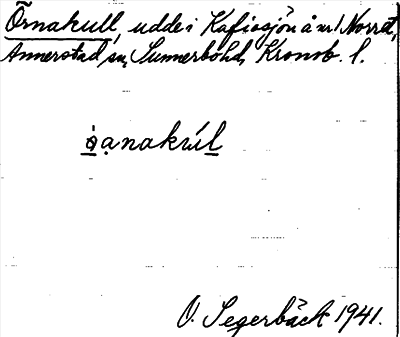 Örnakull, udde i Kafjosjön å nr 1 Norret,
Annerstad sn, Sunnerbohd, Kronob. l.
ȯạnakŕúl
O. Segerbäck 1941.